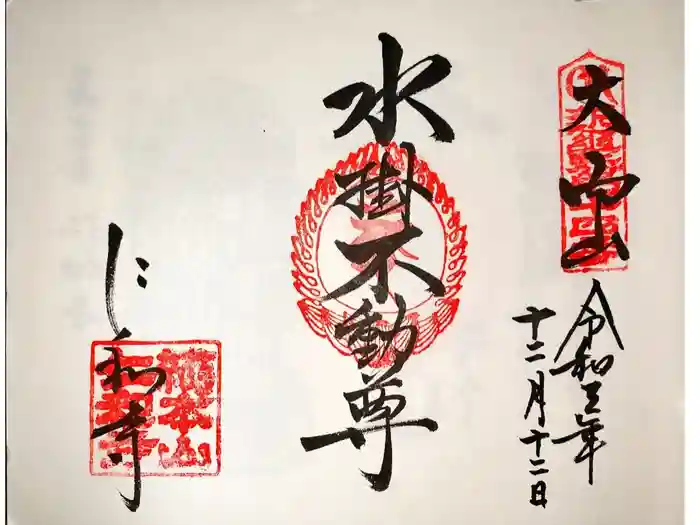 大内山
令和三年
十二月十二日
水掛不動尊
仁和寺
総本山
仁和寺